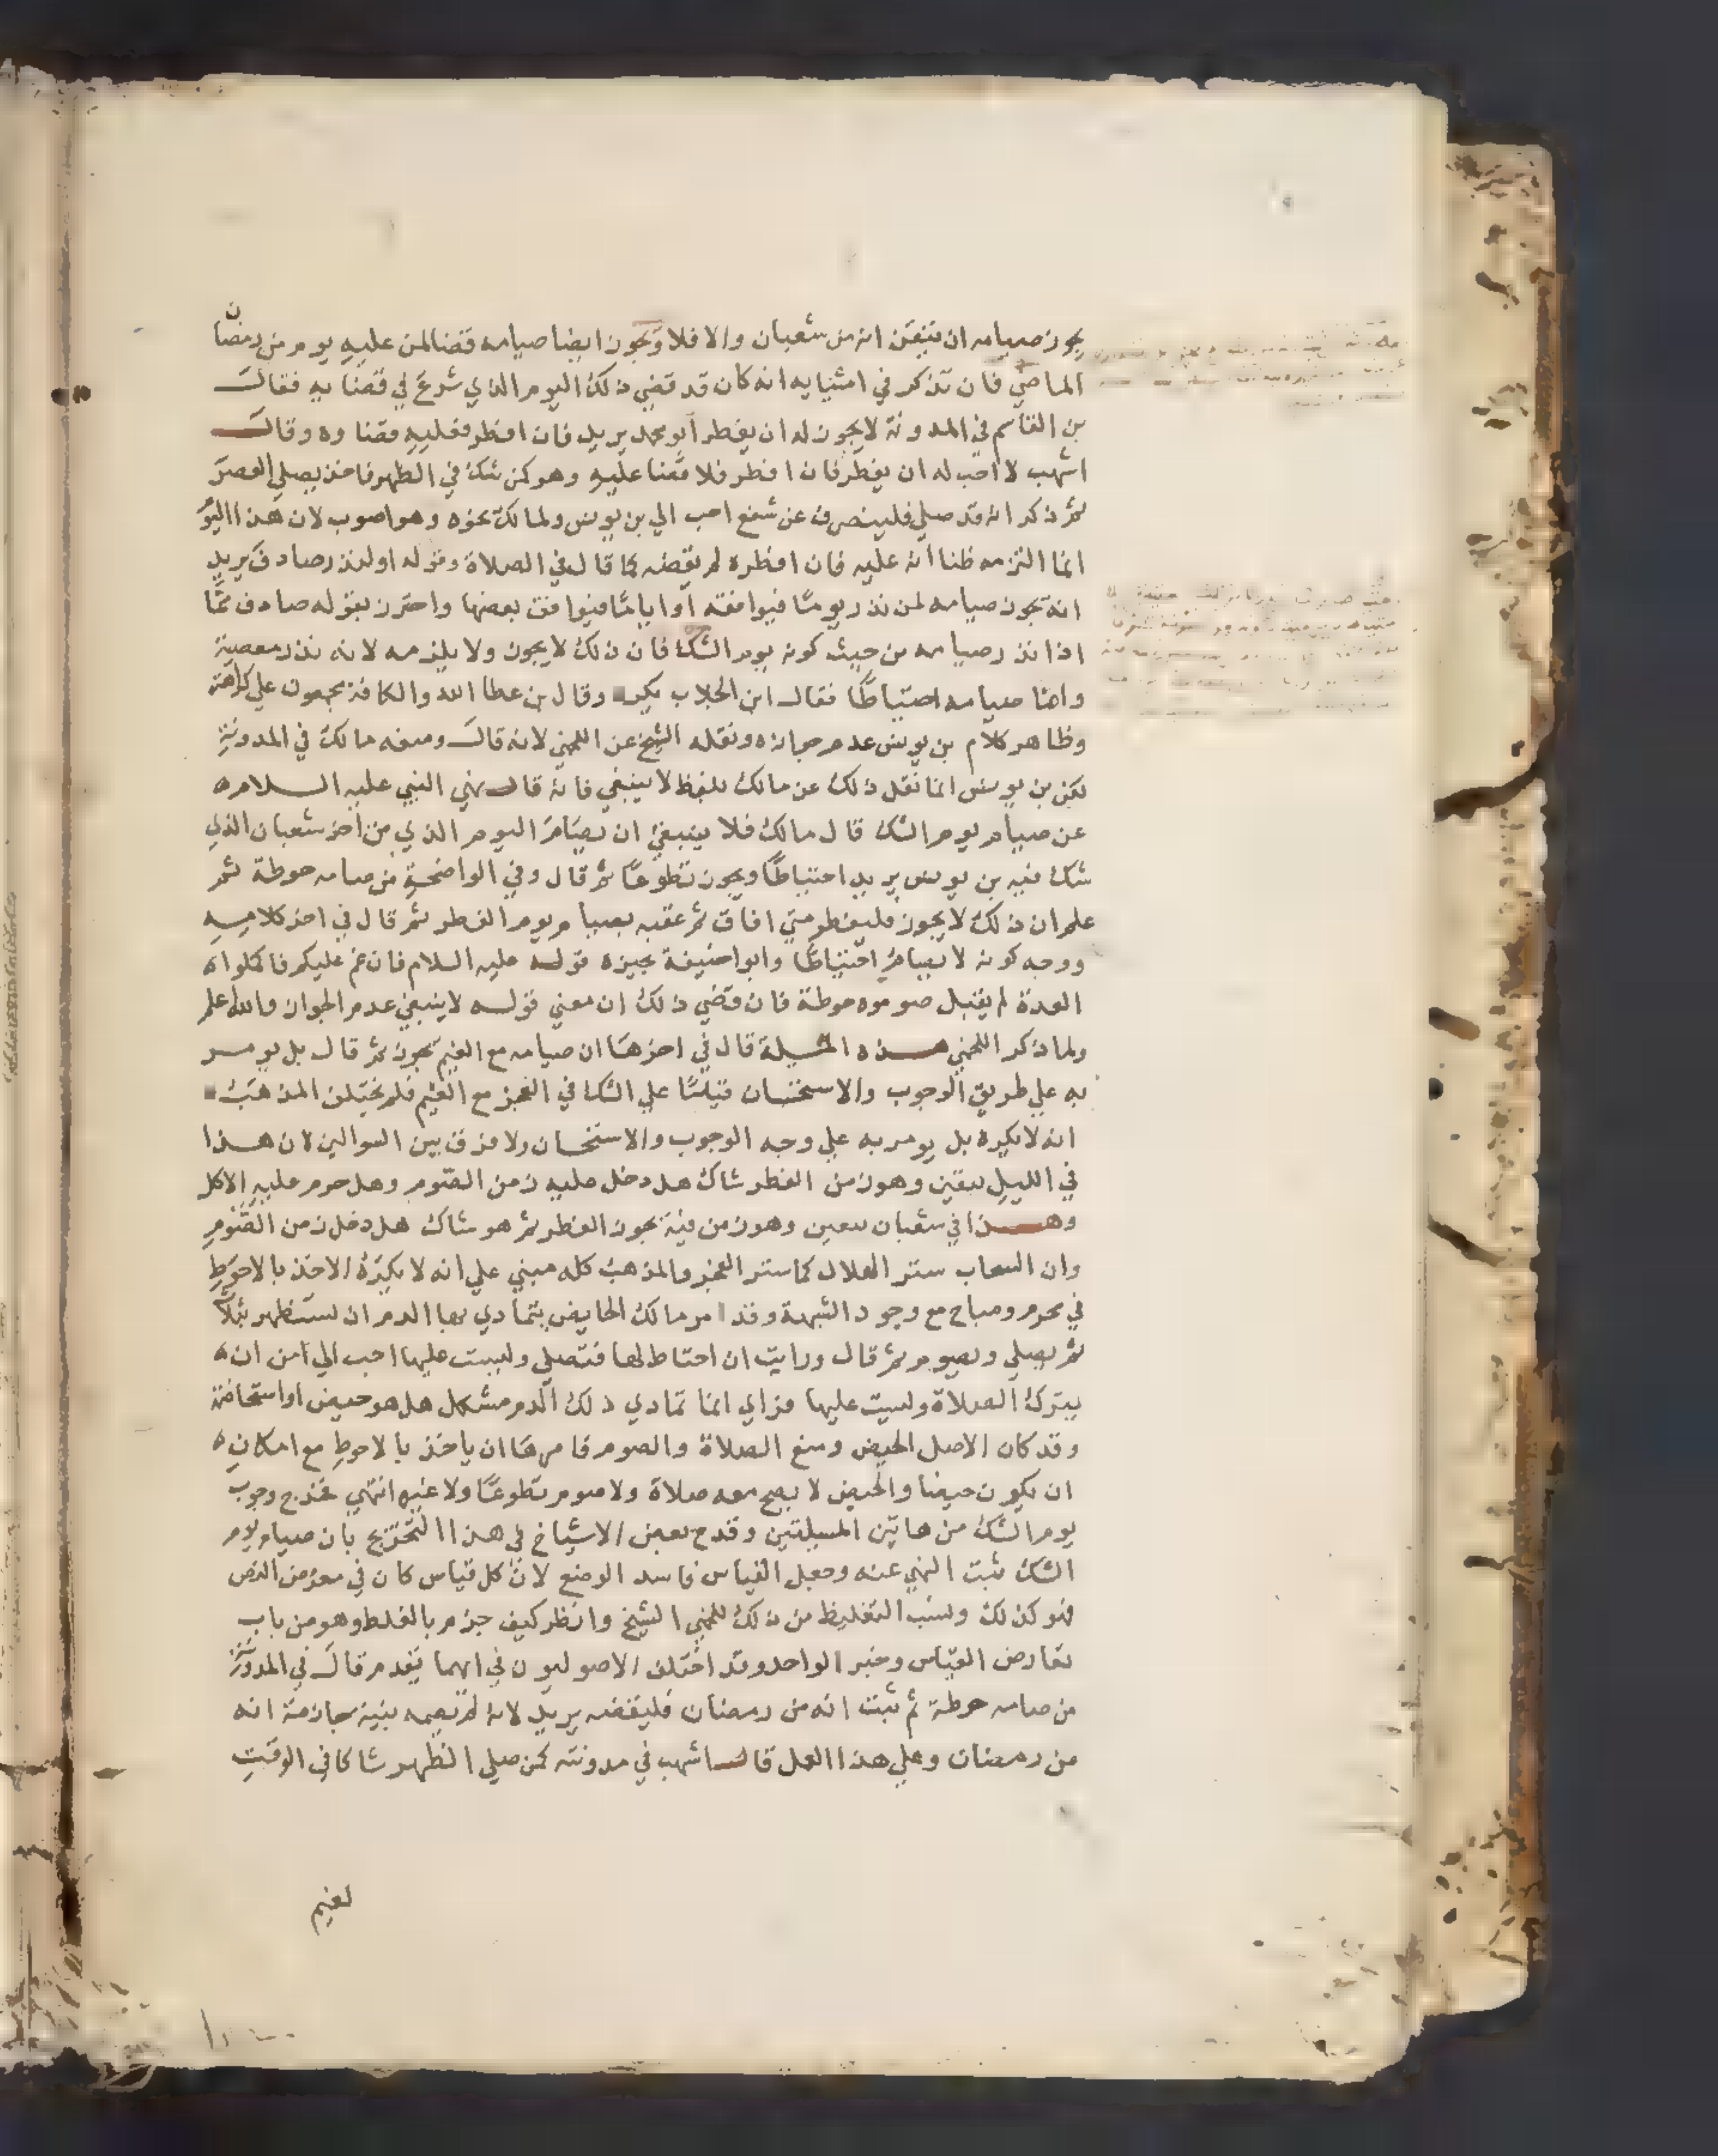 يجوز صيامه ان تيقن انه من شعبان والا فلا ويجوز ايضا صيامه قضا لمن عليه يوم من رمضان
الماضي فان تذكر في اثنايه انه كان قد قضي ذلك اليوم الذي شرع في قضايه فقال
بن القاسم في المدونة لا يجوز له ان يفطر ابو محمد يريد فان افطر فعليه قضاوه وقال
اشهب لا احب له ان يفطر فان افطر فلا قضا عليه وهو كمن شك في الظهر فاخذ يصلي العصر
ثم ذكر انه قد صلي فلينصرف عن شفع احب الي بن يونس ولمالك نحوه وهو اصوب لان هذا اليوم
انما التزمه ظنا انه عليه فان افطره لم يقضه كما قال في الصلاة وقوله او لنذر صادف يريد
انه يجوز صيامه لمن نذر يوما فيوافقه او اياما فيوافق بعضها واحترز بقوله صادف مما
اذا نذر صيامه من حيث كونه يوم الشك فان ذلك لا يجوز ولا يلزمه لانه نذر معصية
واما صيامه احتياطا فقال ابن الجلاب يكره وقال بن عطا الله والكافة مجمعون علي كراهته
وظاهر كلام بن يونس عدم جوازه ونقله الشيخ عن اللخمي لانه قال ومنعه مالك في المدونة
لكن بن يونس انما نقل ذلك عن مالك بلفظ لا ينبغي فانه قال نهي النبي عليه السلام
عن صيام يوم الشك قال مالك فلا ينبغي ان يصام اليوم الذي من اخر شعبان الذي
شك فيه بن يونس يريد احتياطا ويجوز تطوعا ثم قال وفي الواضحة من صامه حوطة ثم
علم ان ذلك لا يجوز فليفطر متي افاق ثم عقبه بصيام يوم الفطر ثم قال في اخر كلامه
ووجه كونه لا يصام احتياطا وابو احنيفة يجيزه قوله عليه السلام فان غم عليكم فاكملوا
العدة لم يقبل صوموه حوطة فان قضي ذلك ان معني قوله لا ينبغي عدم الجواز والله اعلم
ولما ذكر اللخمي هذه المسيلة قال في اخرها ان صيامه مع الغيم يجوز ثم قال بل يومر
به علي طريق الوجوب والاستحسان قياسا علي الشك في الفجر مع الغيم فلم يختلف المذهب
انه لا يكره بل يومر به علي وجه الوجوب والاستحسان ولا فرق بين السوالين لان هذا
في الليل بيقين وهو زمن الفطر شاك هل دخل عليه زمن الصوم وهل حرم عليه الاكل
وهذا في شعبان بيقين وهو زمن فيه يجوز الفطر ثم هو شاك هل دخل زمن الصوم
وان السحاب ستر الهلال كما ستر الفجر والمذهب كله مبني علي انه لا يكره الاخذ بالاحوط
في محرم ومباح مع وجود الشبهة وقد امر مالك الحايض يتمادي بها الدم ان تستظهر بثلاث
ثم تصلي وتصوم ثم قال ورايت ان احتاط لها فتصلي وليست عليها احب الي من ان
يترك الصلاة وليست عليها فراي انما تمادي ذلك الدم مشكل هل هو حيض او استحاضة
وقد كان الاصل الحيض ومنع الصلاة والصوم فامرها ان ياخذ بالاحوط مع امكان
ان يكون حيضا والحيض لا يصح معه صلاة ولا صوم تطوعا ولا غيره انتهي فخرج وجوب
يوم الشك من هاتين المسيلتين وقدح بعض الاشياخ في هذا التخريج بان صيام يوم
الشك ثبت النهي عنه وجعل القياس فاسد الوضع لان كل قياس كان في معرض النص
فهو كذلك ونسب التغليظ من ذلك للخمي الشيخ وانظر كيف جزم بالغلط وهو من باب
تعارض القياس وخبر الواحد وقد اختلف الاصوليون في ايهما يقدم قال في المدونة
من صامه حوطة ثم ثبت انه من رمضان فليقضه يريد لانه لم يصمه بنية جازمة انه
من رمضان وعلي هذا العمل قال اشهب في مدونته كمن صلي الظهر شاكا في الوقت